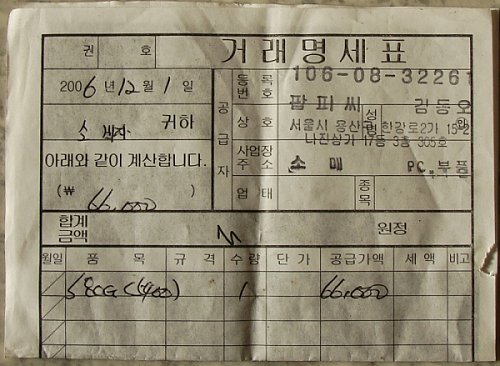 권 호
거래명세표
2006년 12월 1일
귀하
아래와 같이 계산합니다.
(₩ 66,000 )
공급자
등록번호 106-08-32261
상호 팔피씨 성명 김동오 ㊞
사업장주소 서울시 용산구 한강로2가 15-2
나진상가 17동 3층 305호
업태 소매 종목 PC.부품
합계금액 원정
월일 품목 규격 수량 단가 공급가액 세액 비고
1 66,000